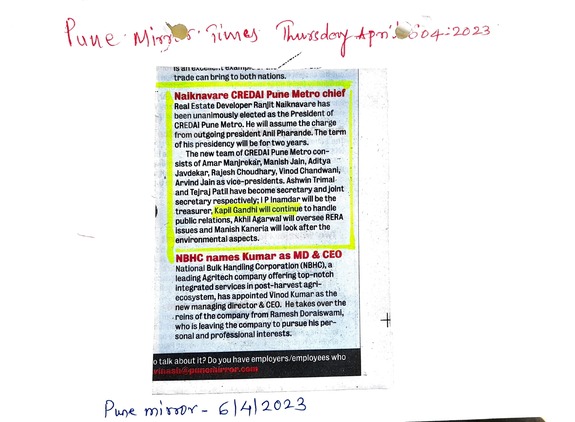 Pune Mirror Times Thursday April 604:2023
is an excellent example
trade can bring to both nations.
Naiknavare CREDAI Pune Metro chief
Real Estate Developer Ranjit Naiknavare has
been unanimously elected as the President of
CREDAI Pune Metro. He will assume the charge
from outgoing president Anil Pharande. The term
of his presidency will be for two years.
The new team of CREDAI Pune Metro con-
sists of Amar Manjrekar, Manish Jain, Aditya
Javdekar, Rajesh Choudhary, Vinod Chandwani,
Arvind Jain as vice-presidents. Ashwin Trimal
and Tejraj Patil have become secretary and joint
secretary respectively; I P Inamdar will be the
treasurer, Kapil Gandhi will continue to handle
public relations, Akhil Agarwal will oversee RERA
issues and Manish Kaneria will look after the
environmental aspects.
NBHC names Kumar as MD & CEO
National Bulk Handling Corporation (NBHC), a
leading Agritech company offering top-notch
integrated services in post-harvest agri-
ecosystem, has appointed Vinod Kumar as the
new managing director & CEO. He takes over the
reins of the company from Ramesh Doraiswami,
who is leaving the company to pursue his per-
sonal and professional interests.
o talk about it? Do you have employers/employees who
@punemirror.com
Pune mirror - 6/4/2023